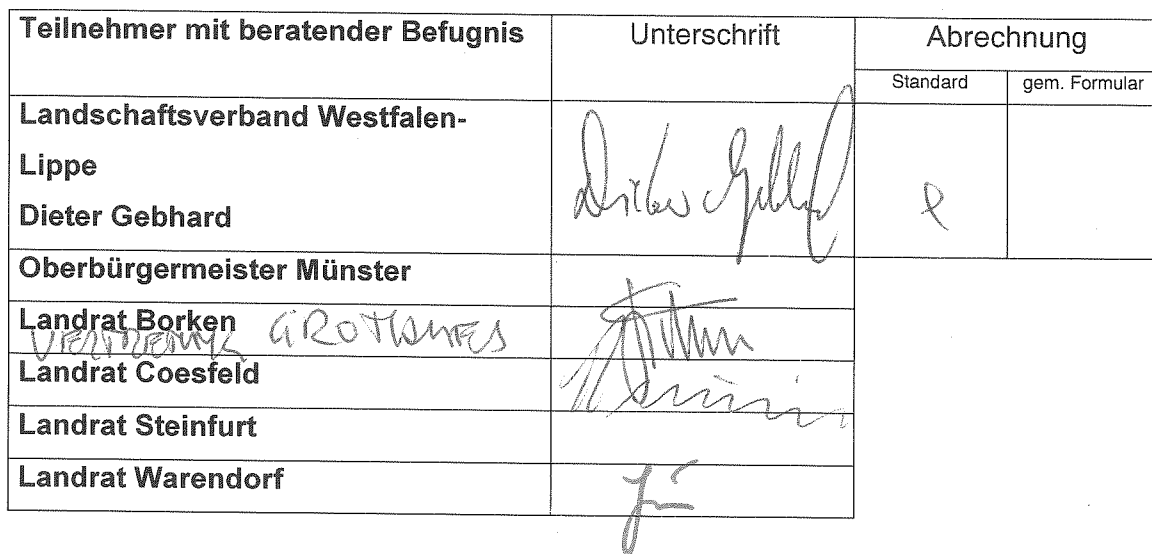 Teilnehmer mit beratender Befugnis Unterschrift Abrechnung
Standard gem. Formular
Landschaftsverband Westfalen-
Lippe
Dieter Gebhard Dieter Gebhard
Oberbürgermeister Münster
Landrat Borken
Landrat Coesfeld
Landrat Steinfurt
Landrat Warendorf